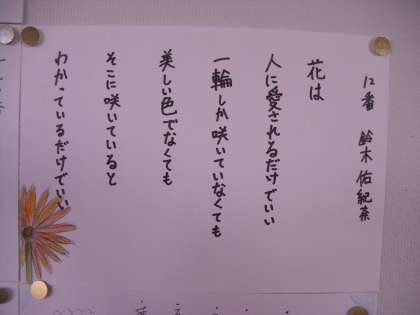 12番 鈴木佑紀奈
花は
人に愛されるだけでいい
一輪しか咲いていなくても
美しい色でなくても
そこに咲いていると
わかっているだけでいい